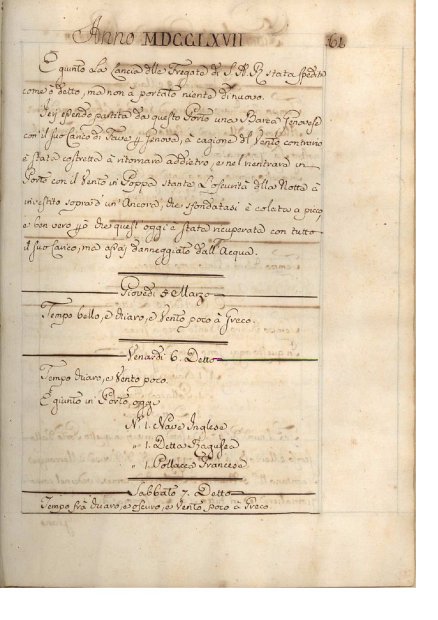 Anno MDCCLXVII 61
È giunto La Lancia della Fregata di S. A. R. stata spedita
come è detto, ma non à portato niente di nuovo.
Jeri essendo partita da questo Porto una Barca Genovese
con il suo Carico di Fave p Genova, à cagione del Vento contrario
è stata costretta à ritornare addietro, e nel rientrare in
Porto con il Vento in Poppa stante L'oscurità della Notte à
investito sopra d'un Ancora, che sfondatasi è colata a picco,
e ben vero però che quest' oggi è stata ricuperata con tutto
il suo Carico, ma assai danneggiato dall'Acqua.
Giovedi 5 Marzo
Tempo bello, e chiaro, e Vento poco à Greco.
Venardi 6. Detto
Tempo chiaro, e Vento poco.
È giunto in Porto, oggi
N.º 1. Nave Inglese
" 1. Detta Ragusea
" 1. Pollacca Francese
Sabbato 7. Detto
Tempo frà chiaro, e oscuro, e Vento poco à Greco